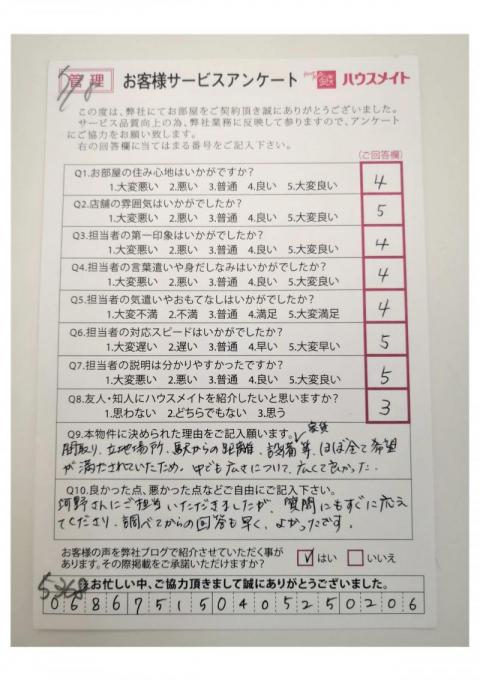 管理 お客様サービスアンケート ハウスメイト
この度は、弊社にてお部屋をご契約頂き誠にありがとうございました。
サービス品質向上の為、弊社業務に反映して参りますので、アンケート
にご協力をお願い致します。
右の回答欄に当てはまる番号をご記入下さい。
(ご回答欄)
Q1.お部屋の住み心地はいかがですか?
1.大変悪い 2.悪い 3.普通 4.良い 5.大変良い
4
Q2.店舗の雰囲気はいかがでしたか?
1.大変悪い 2.悪い 3.普通 4.良い 5.大変良い
5
Q3.担当者の第一印象はいかがでしたか?
1.大変悪い 2.悪い 3.普通 4.良い 5.大変良い
4
Q4.担当者の言葉遣いや身だしなみはいかがでしたか?
1.大変悪い 2.悪い 3.普通 4.良い 5.大変良い
4
Q5.担当者の気遣いやおもてなしはいかがでしたか?
1.大変不満 2.不満 3.普通 4.満足 5.大変満足
4
Q6.担当者の対応スピードはいかがでしたか?
1.大変遅い 2.遅い 3.普通 4.早い 5.大変早い
5
Q7.担当者の説明は分かりやすかったですか?
1.大変悪い 2.悪い 3.普通 4.良い 5.大変良い
5
Q8.友人・知人にハウスメイトを紹介したいと思いますか?
1.思わない 2.どちらでもない 3.思う
3
Q9.本物件に決められた理由をご記入願います。
家賃
間取り、立地場所、駅からの距離、設備等、ほぼ全て希望
が満たされていたため。中でも広さについて、広くて良かった。
Q10.良かった点、悪かった点などご自由にご記入下さい。
河野さんにご担当いただきましたが、質問にもすぐに応え
てくださり、調べてからの回答も早く、よかったです。
お客様の声を弊社ブログで紹介させていただく事が
あります。その際掲載をご承諾いただけますか?
はい いいえ
お忙しい中、ご協力頂きまして誠にありがとうございました。
0 6 8 6 7 5 1 5 0 4 0 5 2 5 0 2 0 6